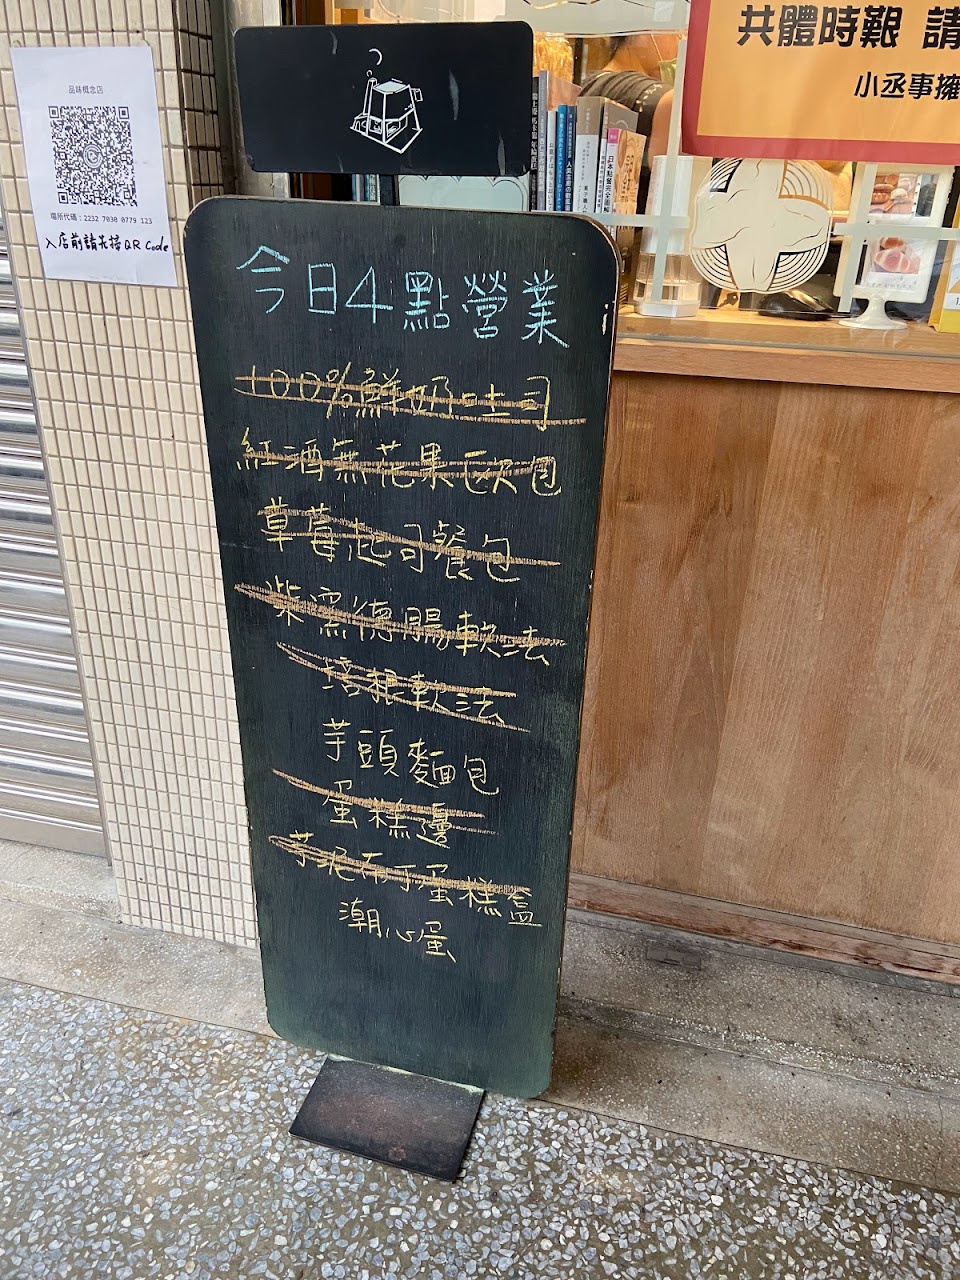 品味概念店
場所代碼：2232 7030 0779 123
入店前請先掃QR Code
共體時艱 請
小丞事擁
今日4點營業
100%鮮奶吐司
紅酒無花果軟包
草莓起司餐包
柴窯德腸軟法
培根軟法
芋頭麵包
蛋糕邊
芋泥布丁蛋糕盒
潮心蛋